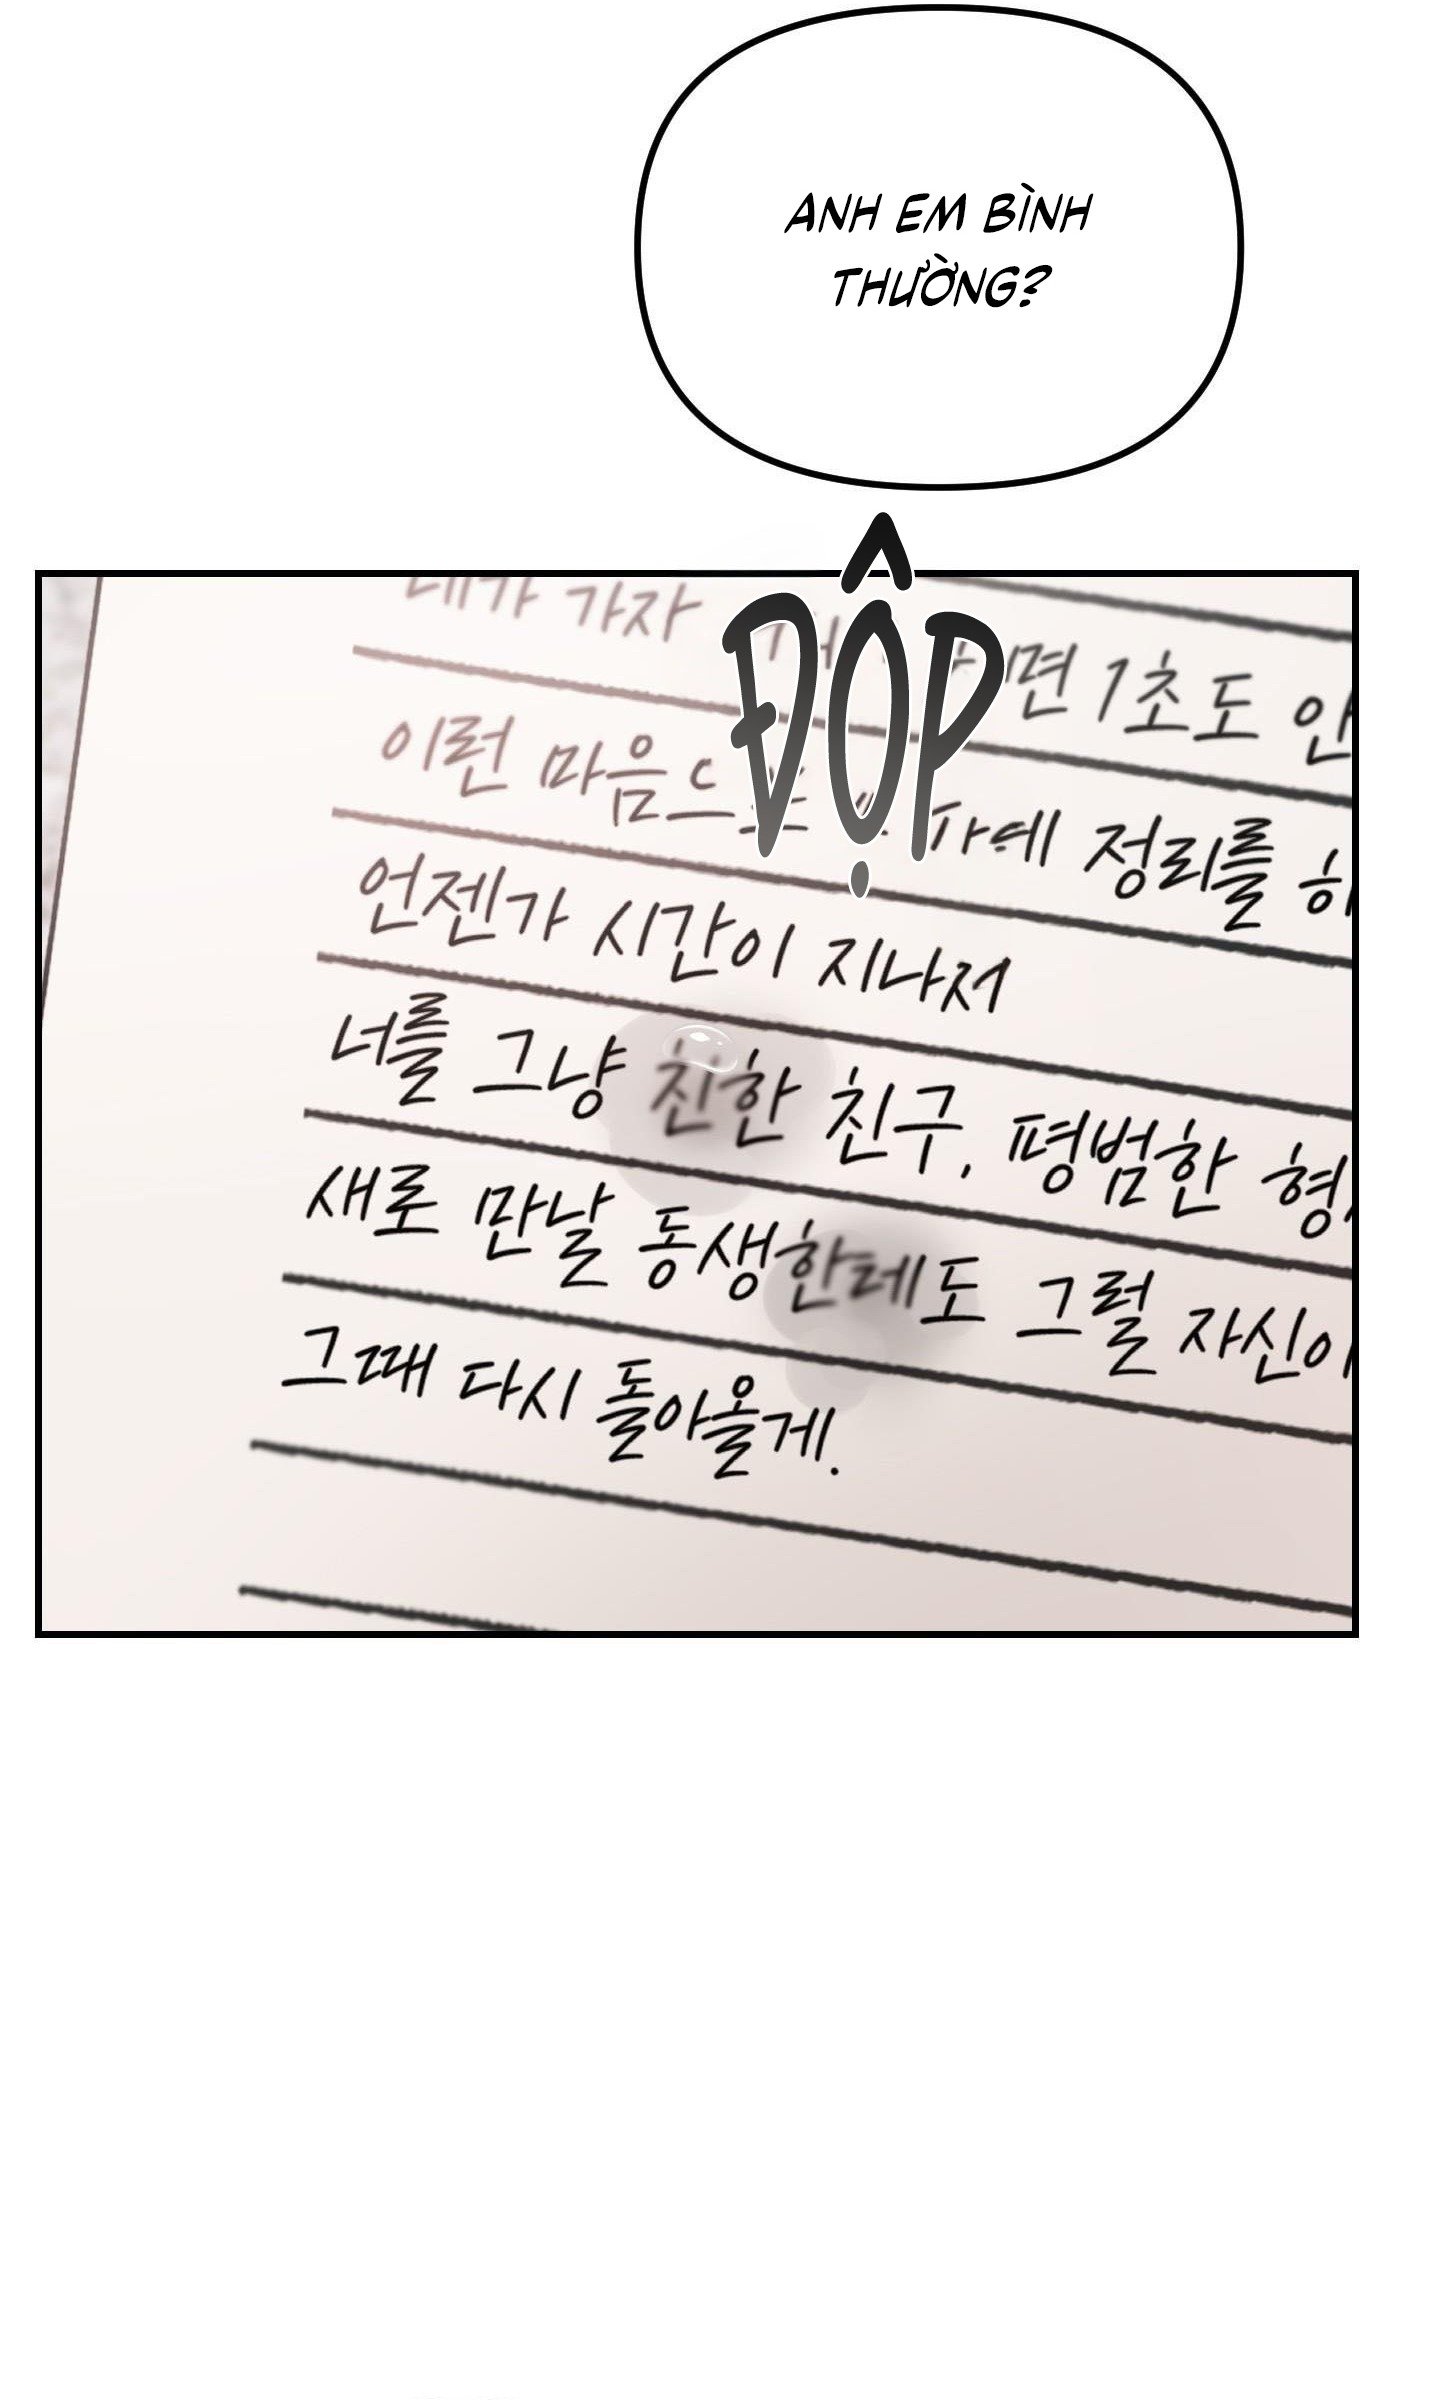 ANH EM BÌNH
THƯỜNG?
ĐỘP
내가 가자 면 1초도 안
이런 마음으로 정리를 하
언젠가 시간이 지나서
너를 그냥 친한 친구, 평범한 형
새로 만날 동생한테도 그럴 자신이
그때 다시 돌아올게.